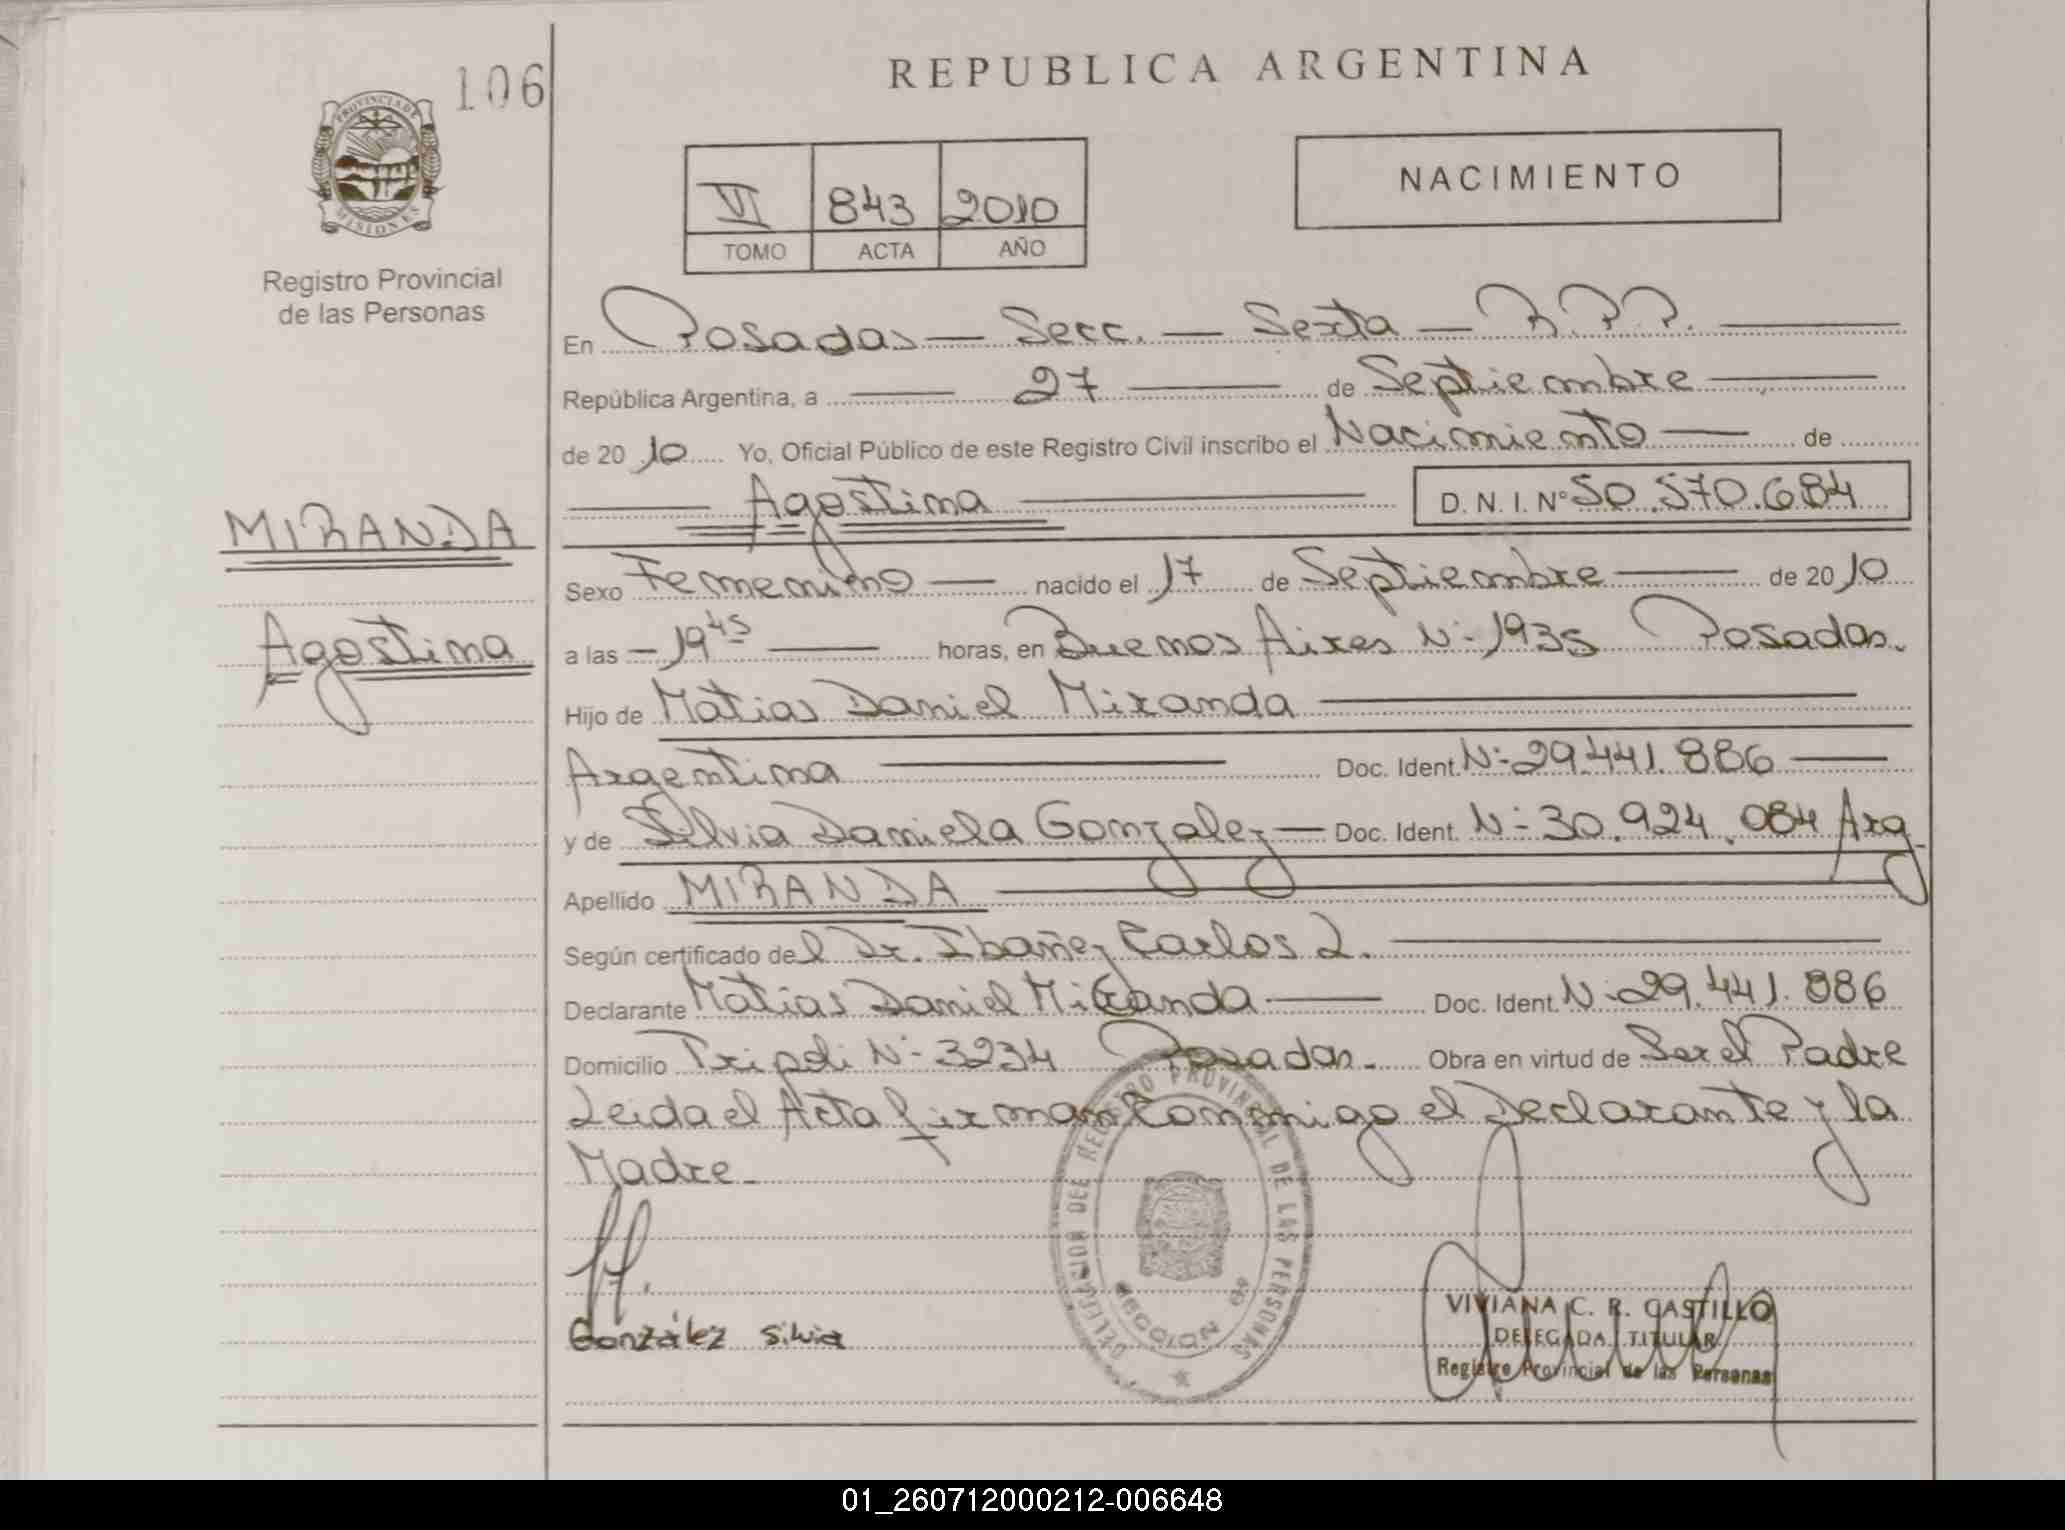 REPUBLICA ARGENTINA
106
PROVINCIA DE MISIONES
Registro Provincial
de las Personas
VI 843 2010
TOMO ACTA AÑO
NACIMIENTO
En Posadas — Secc. — Sexta — R.P.P.
República Argentina, a 27 de Septiembre
de 2010 Yo, Oficial Público de este Registro Civil inscribo el Nacimiento de
Agostina D. N. I. Nº 50.570.684
MIRANDA
Agostina
Sexo Femenino nacido el 17 de Septiembre de 2010
a las - 19 45 horas, en Buenos Aires Nº 1935 Posadas.
Hijo de Matias Daniel Miranda
Argentina Doc. Ident. Nº 29.441.886
y de Silvia Daniela Gonzalez — Doc. Ident. Nº 30.924.084 Arg.
Apellido MIRANDA
Según certificado del Dr. Ibañez Carlos L.
Declarante Matias Daniel Miranda Doc. Ident. Nº 29.441.886
Domicilio Tripoli Nº 3234 Posadas.- Obra en virtud de Ser el Padre
Leida el Acta firman Conmigo el Declarante y la
Madre.-
González Silvia
DELEGACION DEL REGISTRO PROVINCIAL DE LAS PERSONAS
SECCION 6ª
VIVIANA C. R. CASTILLO
DELEGADA TITULAR
Registro Provincial de las Personas
01_260712000212-006648